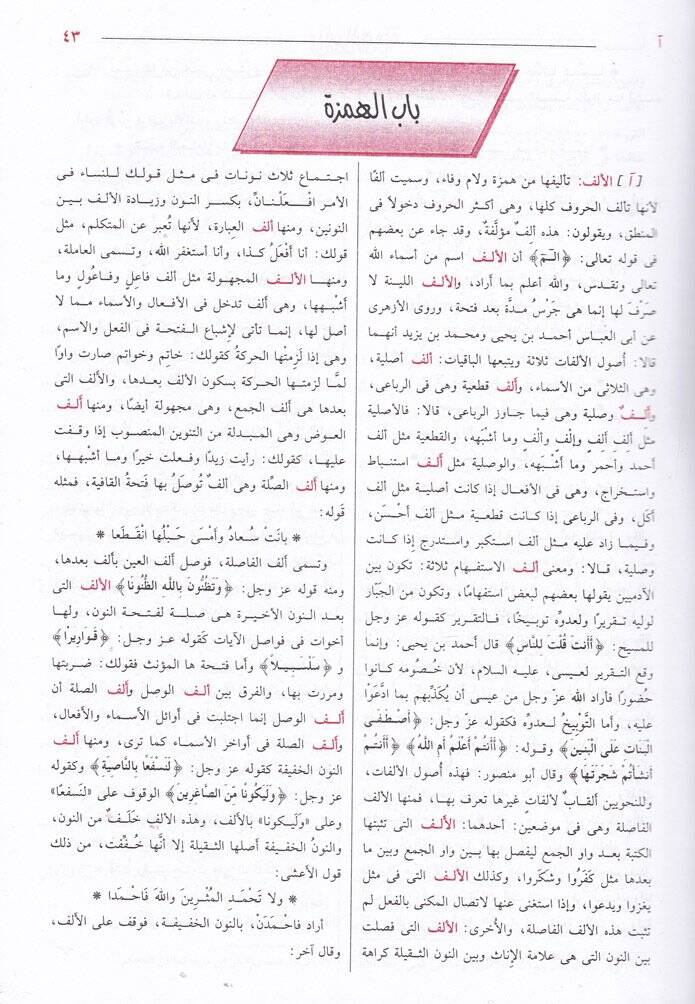 آ
٤٣
باب الهمزة
[آ] الألف: تأليفها من همزة ولام وفاء، وسميت ألفًا
لأنها تألف الحروف كلها، وهى أكثر الحروف دخولاً فى
المنطق، ويقولون: هذه أَلِفٌ مؤلَّفةٌ، وقد جاء عن بعضهم
فى قوله تعالى: ﴿الـم﴾ أن الألف اسم من أسماء الله
تعالى وتقدس، والله أعلم بما أراد، والألف اللينة لا
صَرْفَ لها إنما هى جَرْسُ مدَّة بعد فتحة، وروى الأزهرى
عن أبى العباس أحمد بن يحيى ومحمد بن يزيد أنهما
قالا: أُصول الألفات ثلاثة ويتبعها الباقيات: ألف أصلية،
وهى الثلاثى من الأسماء، وألف قطعية وهى فى الرباعى،
وألـفٌ وصلية وهى فيما جاوز الرباعى، قالا: فالأصلية
مثل أَلِفِ أَلِفٍ وإلْفٍ وألْفٍ وما أشبَهه، والقطعية مثل ألف
أحمد وأحمر وما أَشْبَهه، والوصلية مثل ألف استنباط
واستخراج، وهى فى الأفعال إذا كانت أصلية مثل ألف
أكَل، وفى الرباعى إذا كانت قطعية مثل ألف أحْسَن،
وفيما زاد عليه مثل ألف استكبر واستدرج إذا كانت
وصلية، قالا: ومعنى ألف الاستفهام ثلاثة: تكون بين
الآدميين يقولها بعضهم لبعض استفهامًا، وتكون من الجَبّار
لوليه تقريرًا ولعدوِّه توبيخًا، فالتقرير كقوله عز وجل
للمسيح: ﴿أَأَنتَ قُلْتَ لِلنَّاسِ﴾ قال أحمد بن يحيى: وإنما
وقع التقرير لعيسى، عليه السلام، لأن خُصُومه كانوا
حُضورًا فأراد الله عزّ وجل من عيسى أن يُكَذِّبهم بما ادَّعَوْا
عليه، وأما التَّوْبِيخُ لعدوّه فكقوله عز وجل: ﴿أَصْطَفَى
الْبَنَاتِ عَلَى الْبَنِينَ﴾ وقوله: ﴿أَأَنتُمْ أَعْلَمُ أَمِ اللَّهُ﴾ ﴿أَأَنتُمْ
أَنشَأْتُمْ شَجَرَتَهَا﴾ وقال أبو منصور: فهذه أُصول الألفات،
وللنحويين ألقابٌ لألفاتٍ غيرها تعرف بها، فمنها الألف
الفاصلة وهى فى موضعين: أحدهما: الألف التى تثبتها
الكتبة بعد واو الجمع ليفصل بها بين واو الجمع وبين ما
بعدها مثل كَفَرُوا وشكَروا، وكذلك الألف التى فى مثل
يغزوا ويدعوا، وإذا استغنى عنها لاتصال المكنى بالفعل لم
تثبت هذه الألف الفاصلة، والأُخرى: الألف التى فصلت
بين النون التى هى علامة الإناث وبين النون الثقيلة كراهة
اجتماع ثلاث نونات فى مثل قولك للنساء فى
الأمر افْعَلْنانِّ، بكسر النون وزيادة الألف بين
النونين، ومنها ألف العِبارة، لأنها تُعبر عن المتكلم، مثل
قولك: أنا أَفْعَلُ كذا، وأنا أستغفر الله، وتسمى العاملة،
ومنها الألف المجهولة مثل ألف فاعلٍ وفاعُولٍ وما
أشْبهها، وهى ألف تدخل فى الأفعال والأسماء مما لا
أصل لها، إنما تأتى لإشباع الفتحة فى الفعل والاسم،
وهى إذا لَزِمَتْها الحركةُ كقولك: خاتِم وخواتم صارت واوًا
لمَّا لزمتها الحركة بسكون الألف بعدها، والألف التى
بعدها هى ألف الجمع، وهى مجهولة أيضًا، ومنها ألف
العوض وهى المبدلة من التنوين المنصوب إذا وقفت
عليها، كقولك: رأيت زيدًا وفعلت خيرًا وما أشْبهها،
ومنها ألف الصِّلة وهى ألفٌ تُوصَلُ بها فَتحةُ القافية، فمثله
قَوله:
* بانَتْ سُعادُ وأَمْسَى حَبْلُها انْقَطَعا *
وتسمى ألف الفاصلة، فوصل ألف العين بألف بعدها،
ومنه قوله عز وجل: ﴿وَتَظُنُّونَ بِاللَّهِ الظُّنُونَا﴾ الألف التى
بعد النون الأخيرة هى صلة لفتحة النون، ولها
أخوات فى فواصل الآيات كَقوله عز وجل: ﴿قَوَارِيرَا﴾
و ﴿سَلْسَبِيلاً﴾ وأما فتحة ها المؤنث فقولك: ضربتها
ومررت بها، والفرق بين ألف الوصل وألف الصلة أن
ألف الوصل إنما اجتلبت فى أوائل الأسماء والأفعال،
وألف الصلة فى أواخر الأسماء كما ترى، ومنها ألف
النون الخفيفة كقوله عز وجل: ﴿لَنَسْفَعًا بِالنَّاصِيَةِ﴾ وكقوله
عز وجل: ﴿وَلَيَكُونًا مِّنَ الصَّاغِرِينَ﴾ الوقوف على «لنَسفَعًا»
وعلى «وَلَيكونا» بالألف، وهذه الألف خَلَـفٌ من النون،
والنونُ الخفيفة أصلها الثقيلة إلا أنها خُفِّفت، من ذلك
قول الأعشى:
* ولا تَحْمَدِ الْمُثْرِينَ واللهَ فَاحْمَدا *
أراد فاحْمَدَنْ، بالنون الخفيفة، فوقف على الألف،
وقال آخر: